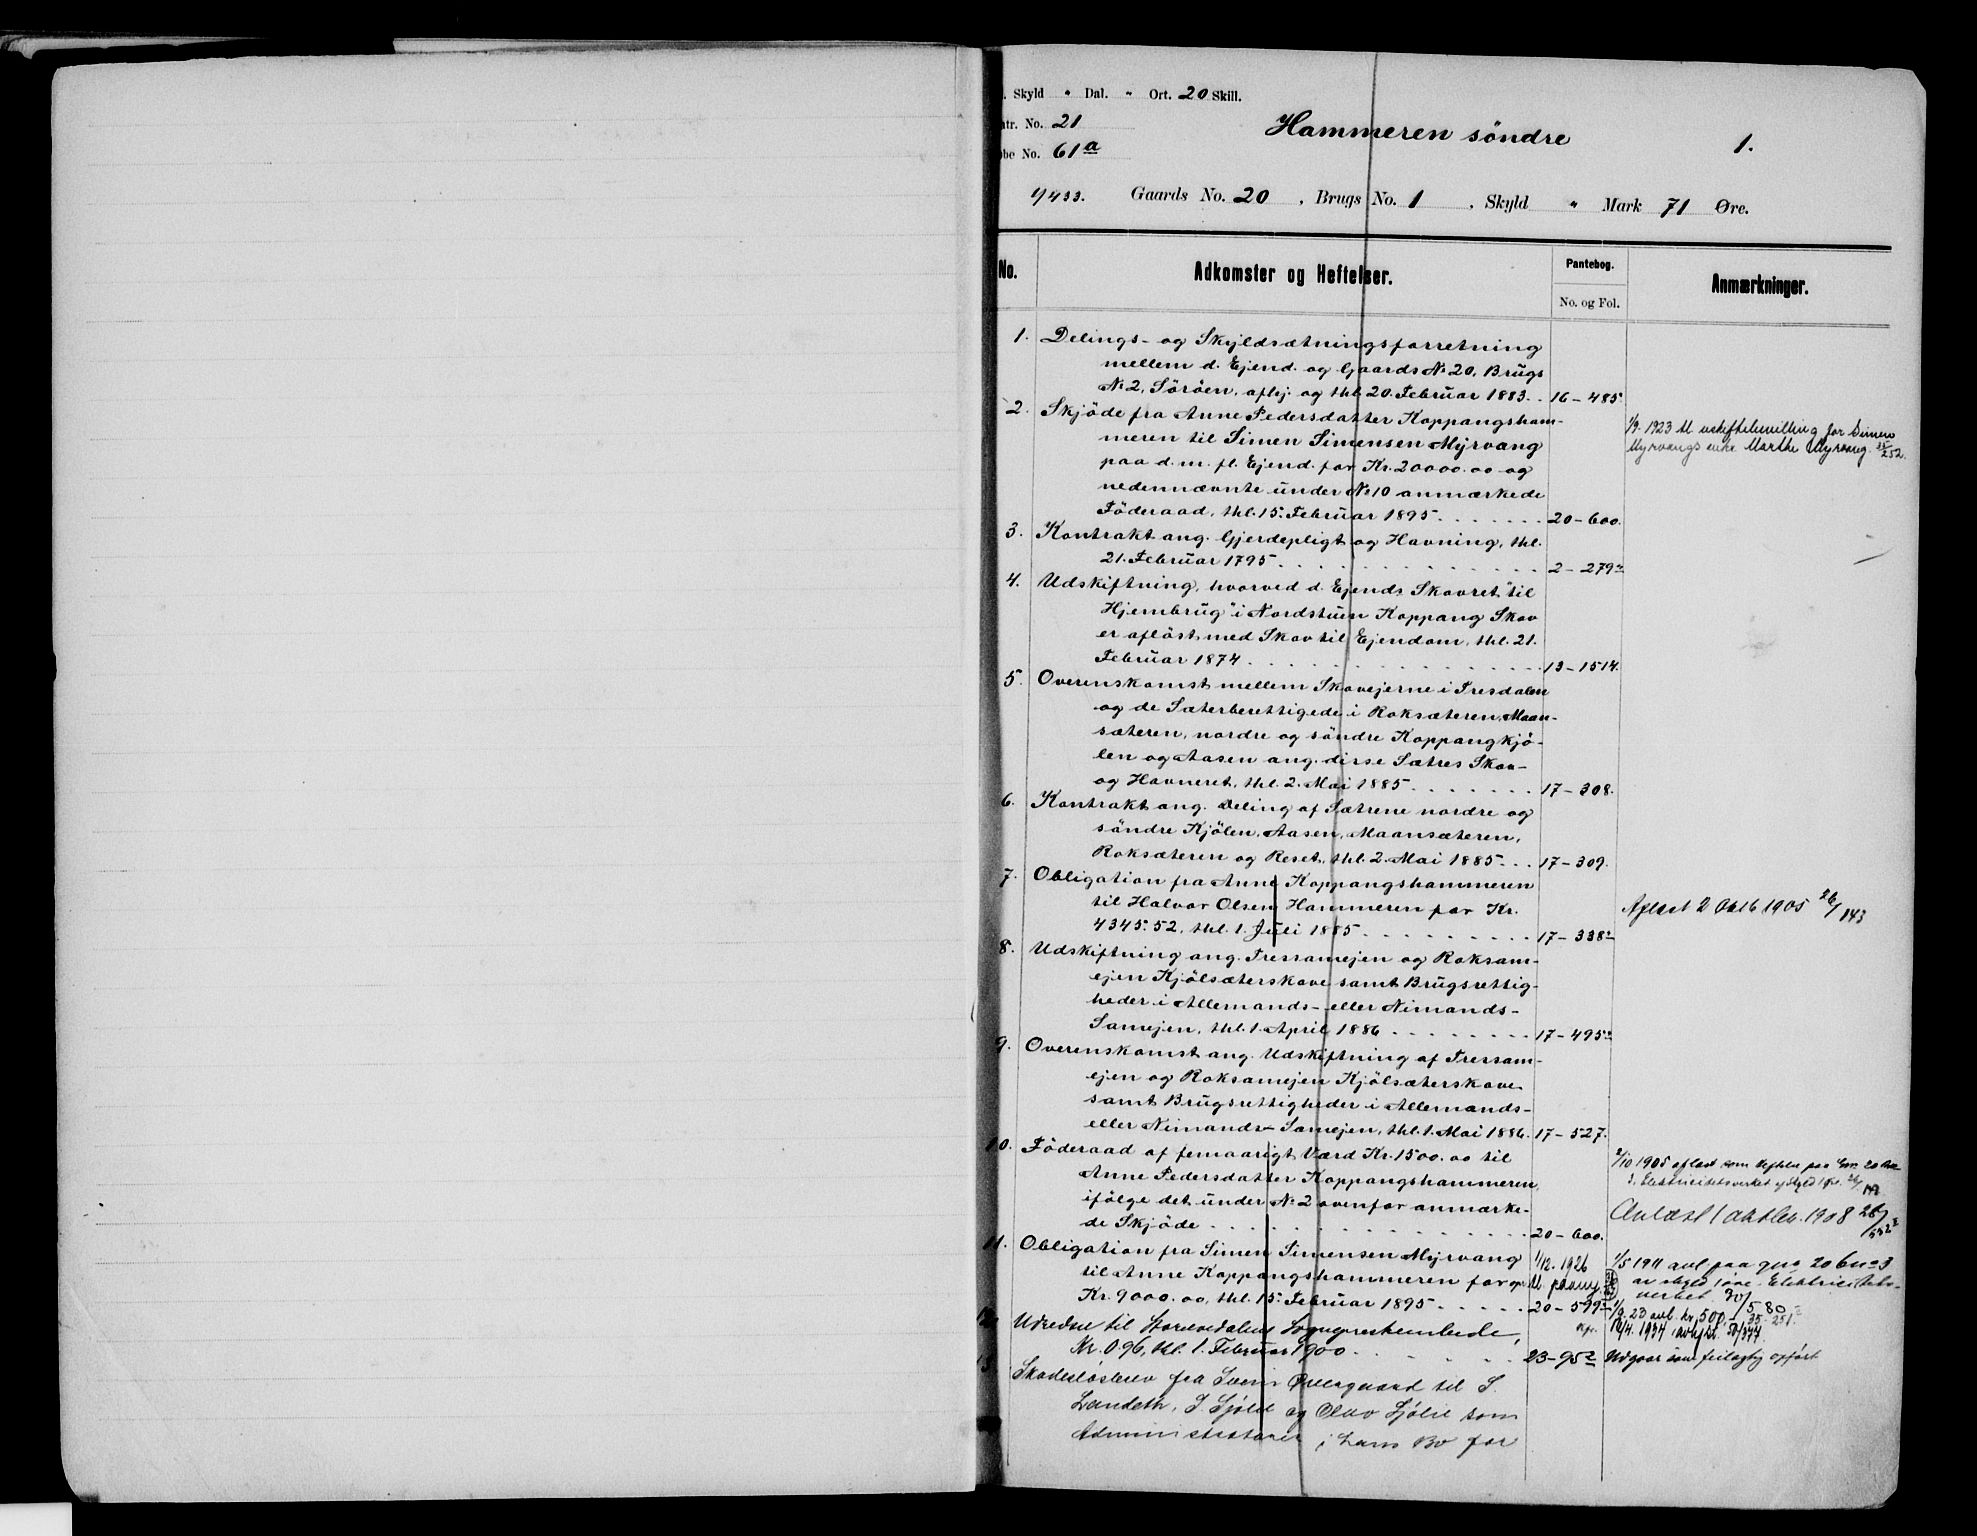 . Skyld " Dal. " Ort. 20 Skill.
atr. No. 21
Hammeren söndre
1.
be No. 61 a
1/433. Gaards No. 20, Brugs No. 1, Skyld " Mark 71 Øre.
No. Adkomster og Heftelser. Pantebog. No. og Fol. Anmærkninger.
1. Delings- og Skyldsætningsforretning
mellem d. Ejend. og Gaards No 20, Brugs
No 2, Söröen, aflej. og thl. 20. Februar 1883. 16 – 485.
2. Skjöde fra Anne Pedersdatter Koppangsham-
meren til Simen Simensen Myrvang
paa d. m. fl. Ejend. for Kr. 20000.00 og
nedennævnte under No 10 anmærkede
Föderaad, thl. 15. Februar 1895. 20 – 600.
1/9. 1923 til uskiftebevilling for Simen
Myrvangs enke Marthe Myrvang 35/252.
3. Kontrakt ang. Gjerdepligt og Havning, thl.
21. Februar 1795. 2 – 279
4. Udskiftning, hvorved d. Ejends Skovret "til
Hjembrug" i Nordstuen Koppang Skov
er aflöst med Skov til Ejendom, thl. 21.
Februar 1874. 13 – 1514.
5. Overenskomst mellem Skovejerne i Tresdalen
og de Sæterberettigede i Roksæteren, Maan-
sæteren, nordre og söndre Koppangkjö-
len og Aasen ang. disse Sætres Skov-
og Havneret, thl. 2. Mai 1885. 17 – 308.
6. Kontrakt ang. Deling af Sætrene nordre og
söndre Kjölen, Aasen, Maansæteren,
Roksæteren og Reset, thl. 2. Mai 1885. 17 – 309.
7. Obligation fra Anne Koppangshammeren
til Halvor Olsen Hammeren for Kr.
4345.52, thl. 1. Juli 1885. 17 – 338
Aflæst 2 Oktb 1905 26/143
8. Udskiftning ang. Tressamejen og Roksam-
ejen Kjölsæterskove samt Brugsrettig-
heder i Allemands- eller Nimands-
Samejen, thl. 1. April 1886 17 – 495
9. Overenskomst ang. Udskiftning af Tressam-
ejen og Roksamejen Kjölsæterskove
samt Brugsrettigheder i Allemands-
eller Nimands- Samejen, thl. 1. Mai 1886. 17 – 527.
10. Föderaad af femaarigt Værd Kr. 1500.00 til
Anne Pedersdatter Koppangshammeren,
ifölge det under No 2 ovenfor anmærke-
de Skjöde 20 – 600.
2/10 1905 aflæst som heftelse paa Gno. 20 Bno
3. Elektricitetsverket af Skyld 1 öre. 26/142
Avlæst 1 oktober. 1908 28/
11. Obligation fra Simen Simensen Myrvang
til Anne Koppangshammeren for
Kr. 9000.00, thl. 15. Februar 1895 20 – 599
1/12. 1926
1/5 1911 avl paa gno 20 bno 3
av skyld 1 øre. Elektricitets-
verket 30/580
1/9. 23 avl. kr. 500.- 35-251.
16/4. 1934
12. Udredsel til Storelvedalens Sognepresteembede,
Kr. 0.96, thl. 1. Februar 1900. 23 – 95
Udgaar som feilagtig opført
13. Skadesløsbrev fra Svein Overgaard til S.
Landeth, J. Sjölie og Olav Sjölie som
Administratorer i Lars Bo for